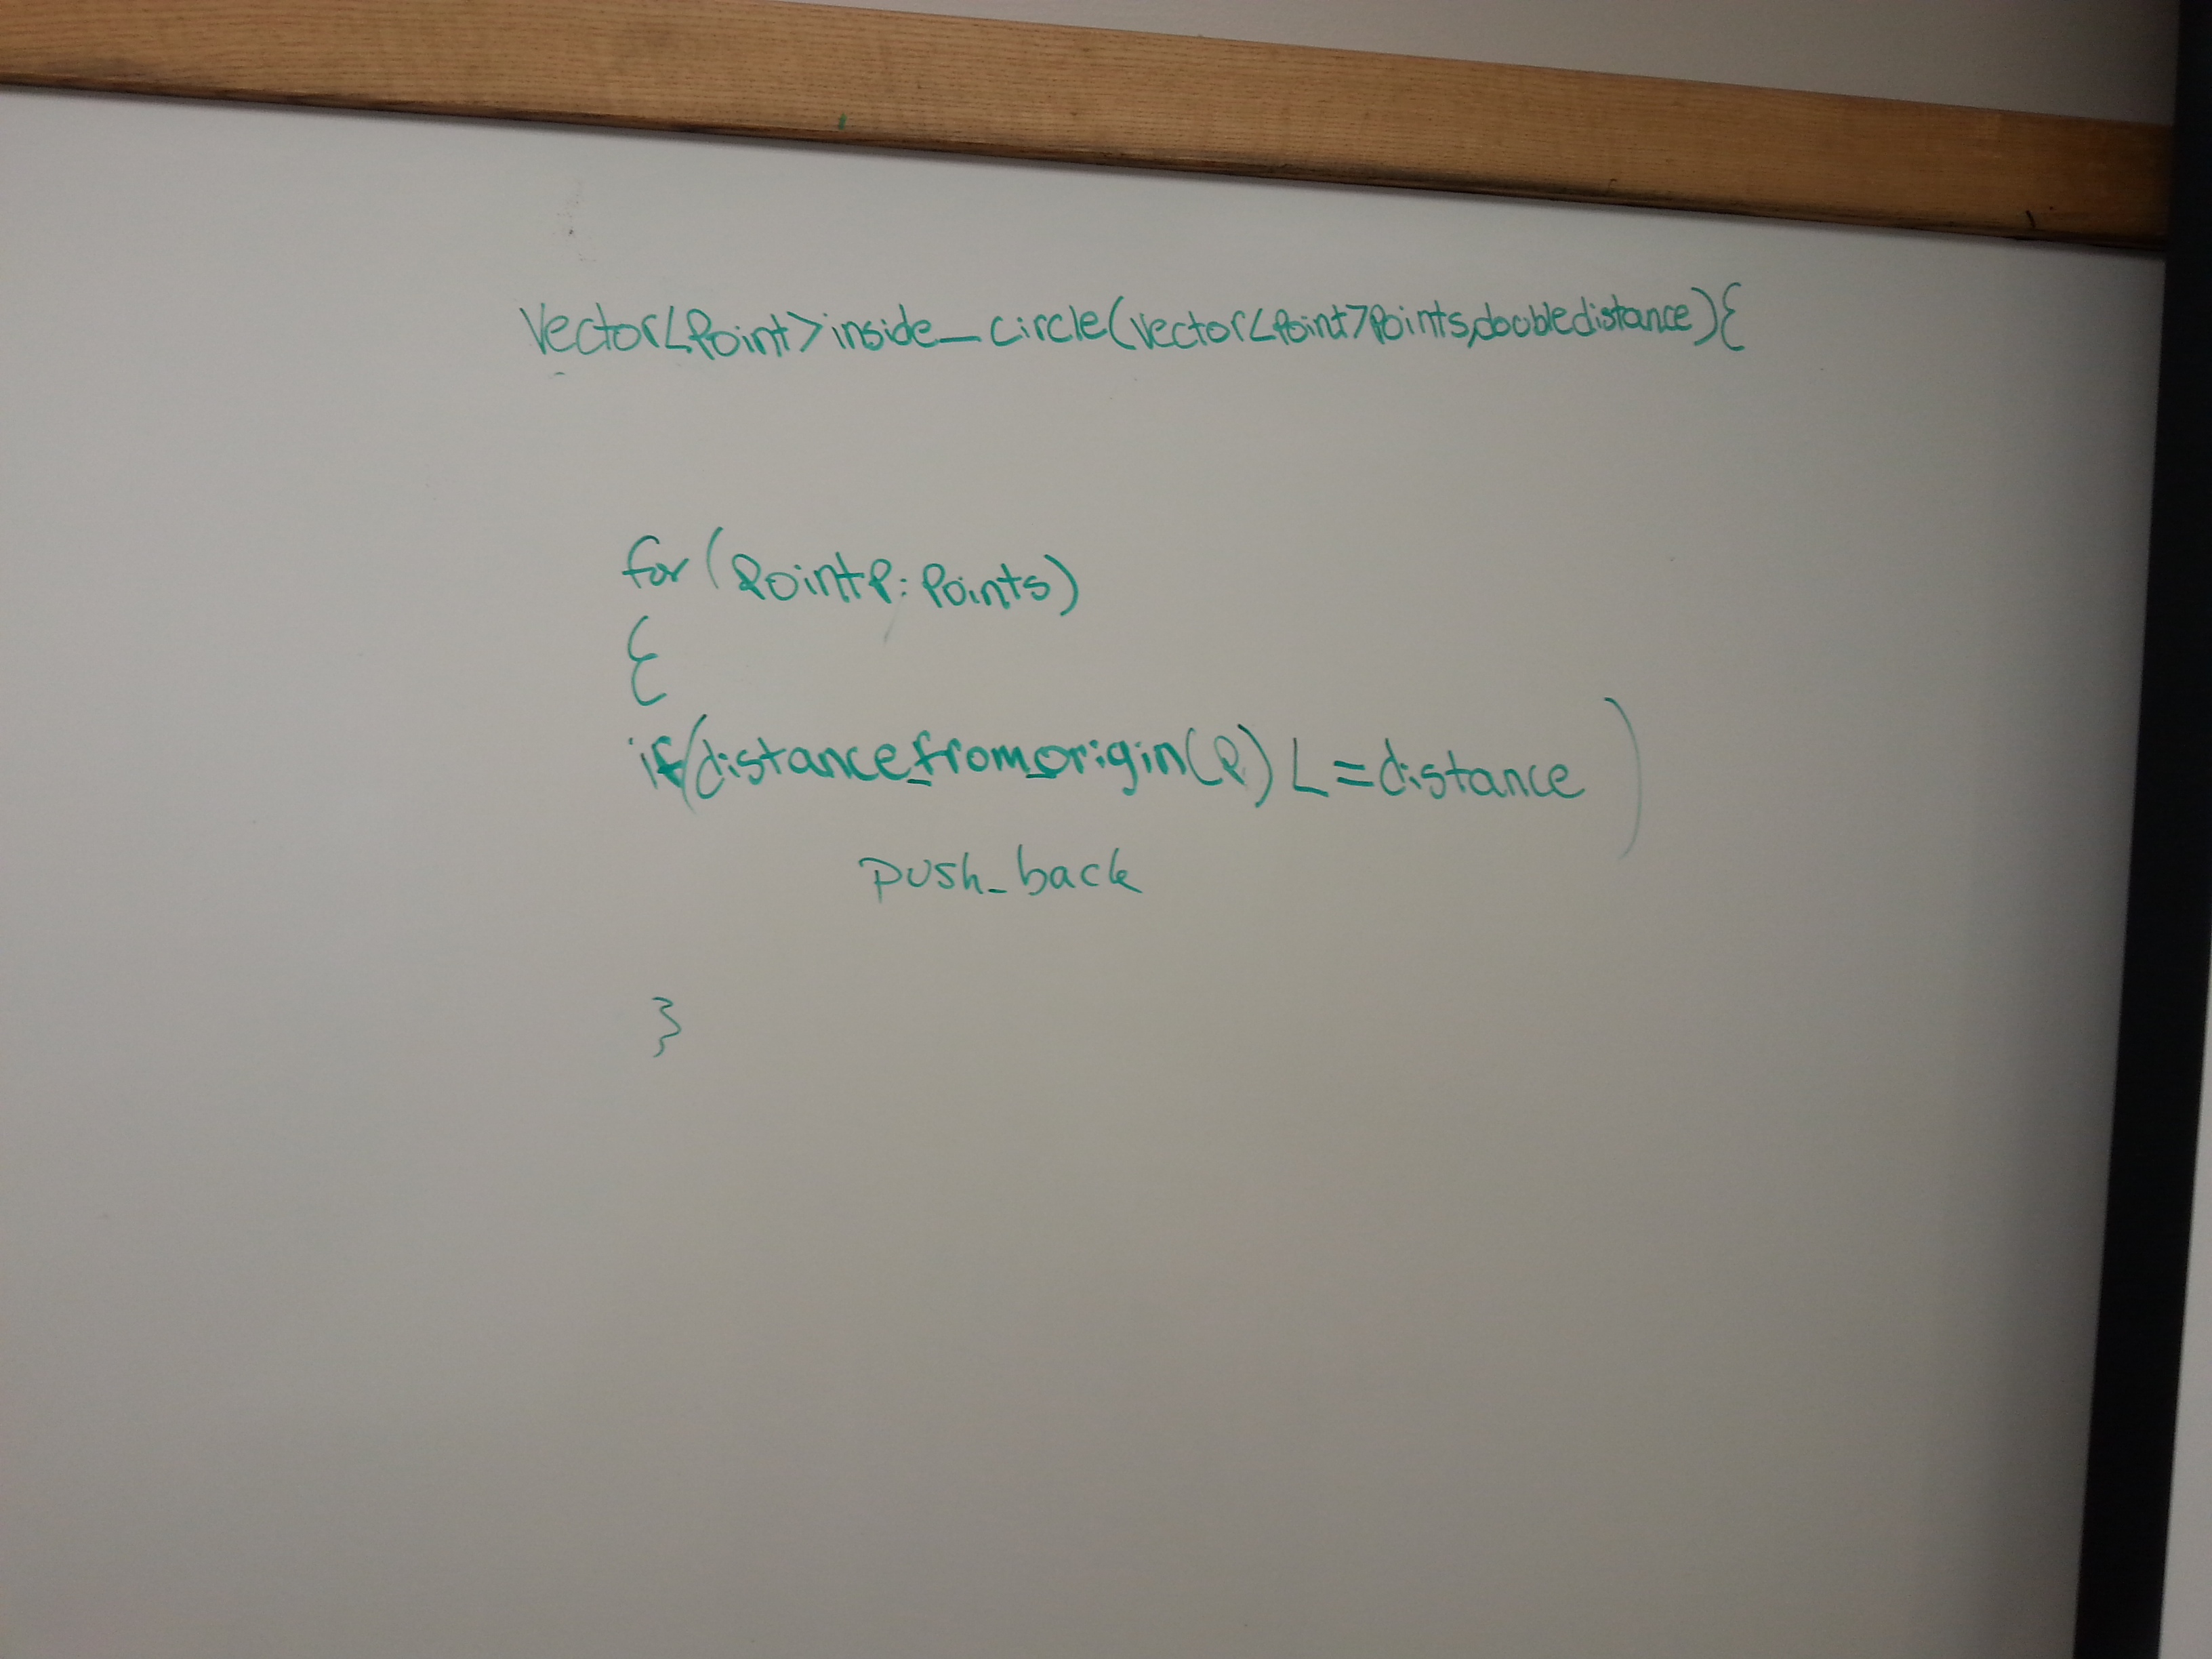 Vector<Point>inside_circle(vector<Point>Points,double distance){
for (Point P: Points)
{
if(distance_from_origin(P) <= distance)
push_back
}